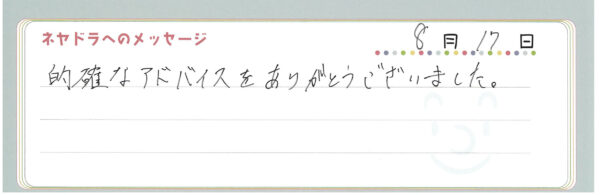 ネヤドラへのメッセージ
8月17日
的確なアドバイスをありがとうございました。